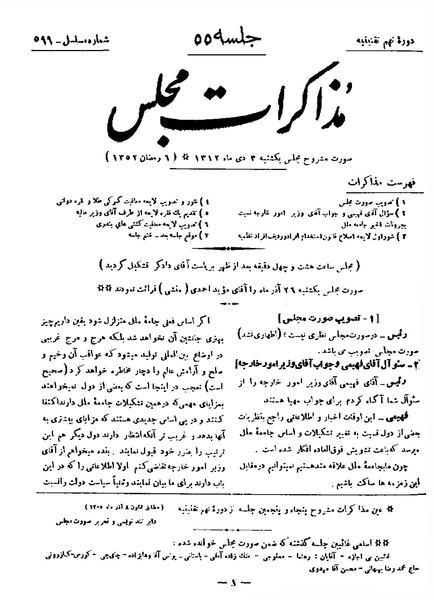 دورهٔ نهم تقنینیه
جلسه ۵۵
شماره مسلسل ۵۹۹
مذاکرات مجلس
صورت مشروح مجلس یکشنبه ۳ دی ماه ۱۳۱۲ * (۶ رمضان ۱۳۵۲)
فهرست مذاکرات
۱) تصویب صورت مجلس
۲) سؤال آقای فهیمی و جواب آقای وزیر امور خارجه نسبت
بجریانات اخیر جامعه ملل
۳) شور اول لایحه اصلاح قانون استخدام افراد ردیف افراد نظمیه
۴) شور و تصویب لایحه معافیت گمرکی طلا و نقره دولتی
۵) تقدیم یک فقره لایحه از طرف آقای وزیر مالیه
۶) تصویب لایحه معافیت کشتی های بندری
۷) موقع جلسه بعد - ختم جلسه
(مجلس ساعت هشت و چهل دقیقه بعد از ظهر بریاست آقای دادگر تشکیل گردید)
صورت مجلس یکشنبه ۲۶ آذر ماه را آقای مؤید احمدی (منشی) قرائت نمودند **
[۱ - تصویب صورت مجلس]
رئیس - در صورت مجلس نظری نیست؟ (اظهاری نشد)
صورت مجلس تصویب می باشد.
[۲ - سئوال آقای فهیمی و جواب آقای وزیر امور خارجه]
رئیس - آقای فهیمی آقای وزیر امور خارجه را از
سئوال شما آگاه کردم برای جواب مهیا هستند
فهیمی - این اوقات اخبار و اطلاعاتی راجع بنظریات
بعضی از دول نسبت به تغییر تشکیلات و اساس جامعهٔ ملل
میرسد که باعث تشویش فوق العاده افکار شده است.
چون ما بجامعهٔ ملل علاقه مند هستیم نمیتوانیم در مقابل
این زمزمه ها ساکت باشیم.
اگر اساس فعلی جامعهٔ ملل متزلزل شود یقین داریم چیز
بهتری جانشین آن نخواهد شد بلکه هرج و مرج غریبی
در اوضاع بین المللی تولید میشود که عواقب آن وخیم و
صلح و آرامش عالم را دچار مخاطره خواهد کرد (صحیح
است) تعجب در اینجا است که بعضی از دول نمیخواهند
بمزایای مهمی که در همین تشکیلات جامعهٔ ملل دارند اکتفا
کنند و در پی اساس جدیدی هستند که مزایای بیشتری به
آنها بدهد و غریب تر آنکه انتظار دارند دول دیگر هم این
ترتیب را بضرر خود قبول نمایند. بنده میخواهم از آقای
وزیر امور خارجه تقاضی کنم اولا اطلاعاتی را که در این
باب دارند برای ما بیان نمایند و ثانیاً سیاست دولت را نسبت
* عین مذاکرات مشروح پنجاه و پنجمین جلسه از دورهٔ نهم تقنینیه
(مطابق قانون ۸ آذر ماه ۱۳۰۵)
دایره تند نویسی و تحریر صورت مجلس
** اسامی غائبین جلسه گذشته که ضمن صورت مجلس خوانده شده:
غائبین بی اجازه - آقایان: رهنما - معلومی - ملک زاده آملی - باستانی - یونس آقا وهابزاده - چایچی - کورس - کازرونی
حاج محمد رضا بهبهانی - محسن آقا مهدوی
— ۸ —